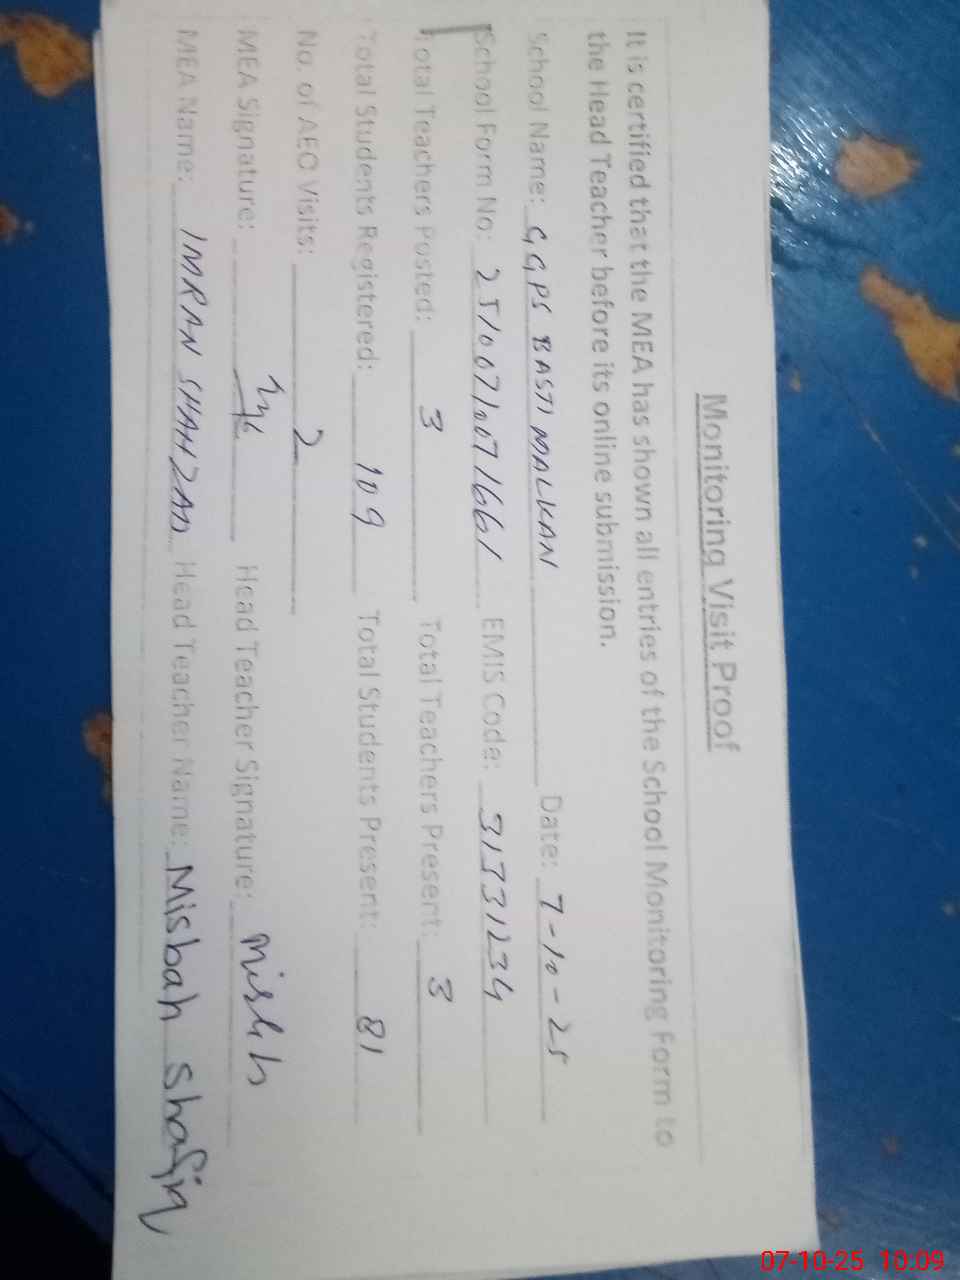 Monitoring Visit Proof
It is certified that the MEA has shown all entries of the School Monitoring Form to
the Head Teacher before its online submission.
School Name: GGPS BASTI MALKAN Date: 7-10-25
School Form No: 25100710071661 EMIS Code: 31331234
Total Teachers Posted: 3 Total Teachers Present: 3
Total Students Registered: 109 Total Students Present: 81
No. of AEO Visits: 2
MEA Signature: Head Teacher Signature: Misbah
MEA Name: IMRAN SHAHZAD Head Teacher Name: Misbah Shafiq
07-10-25 10:09